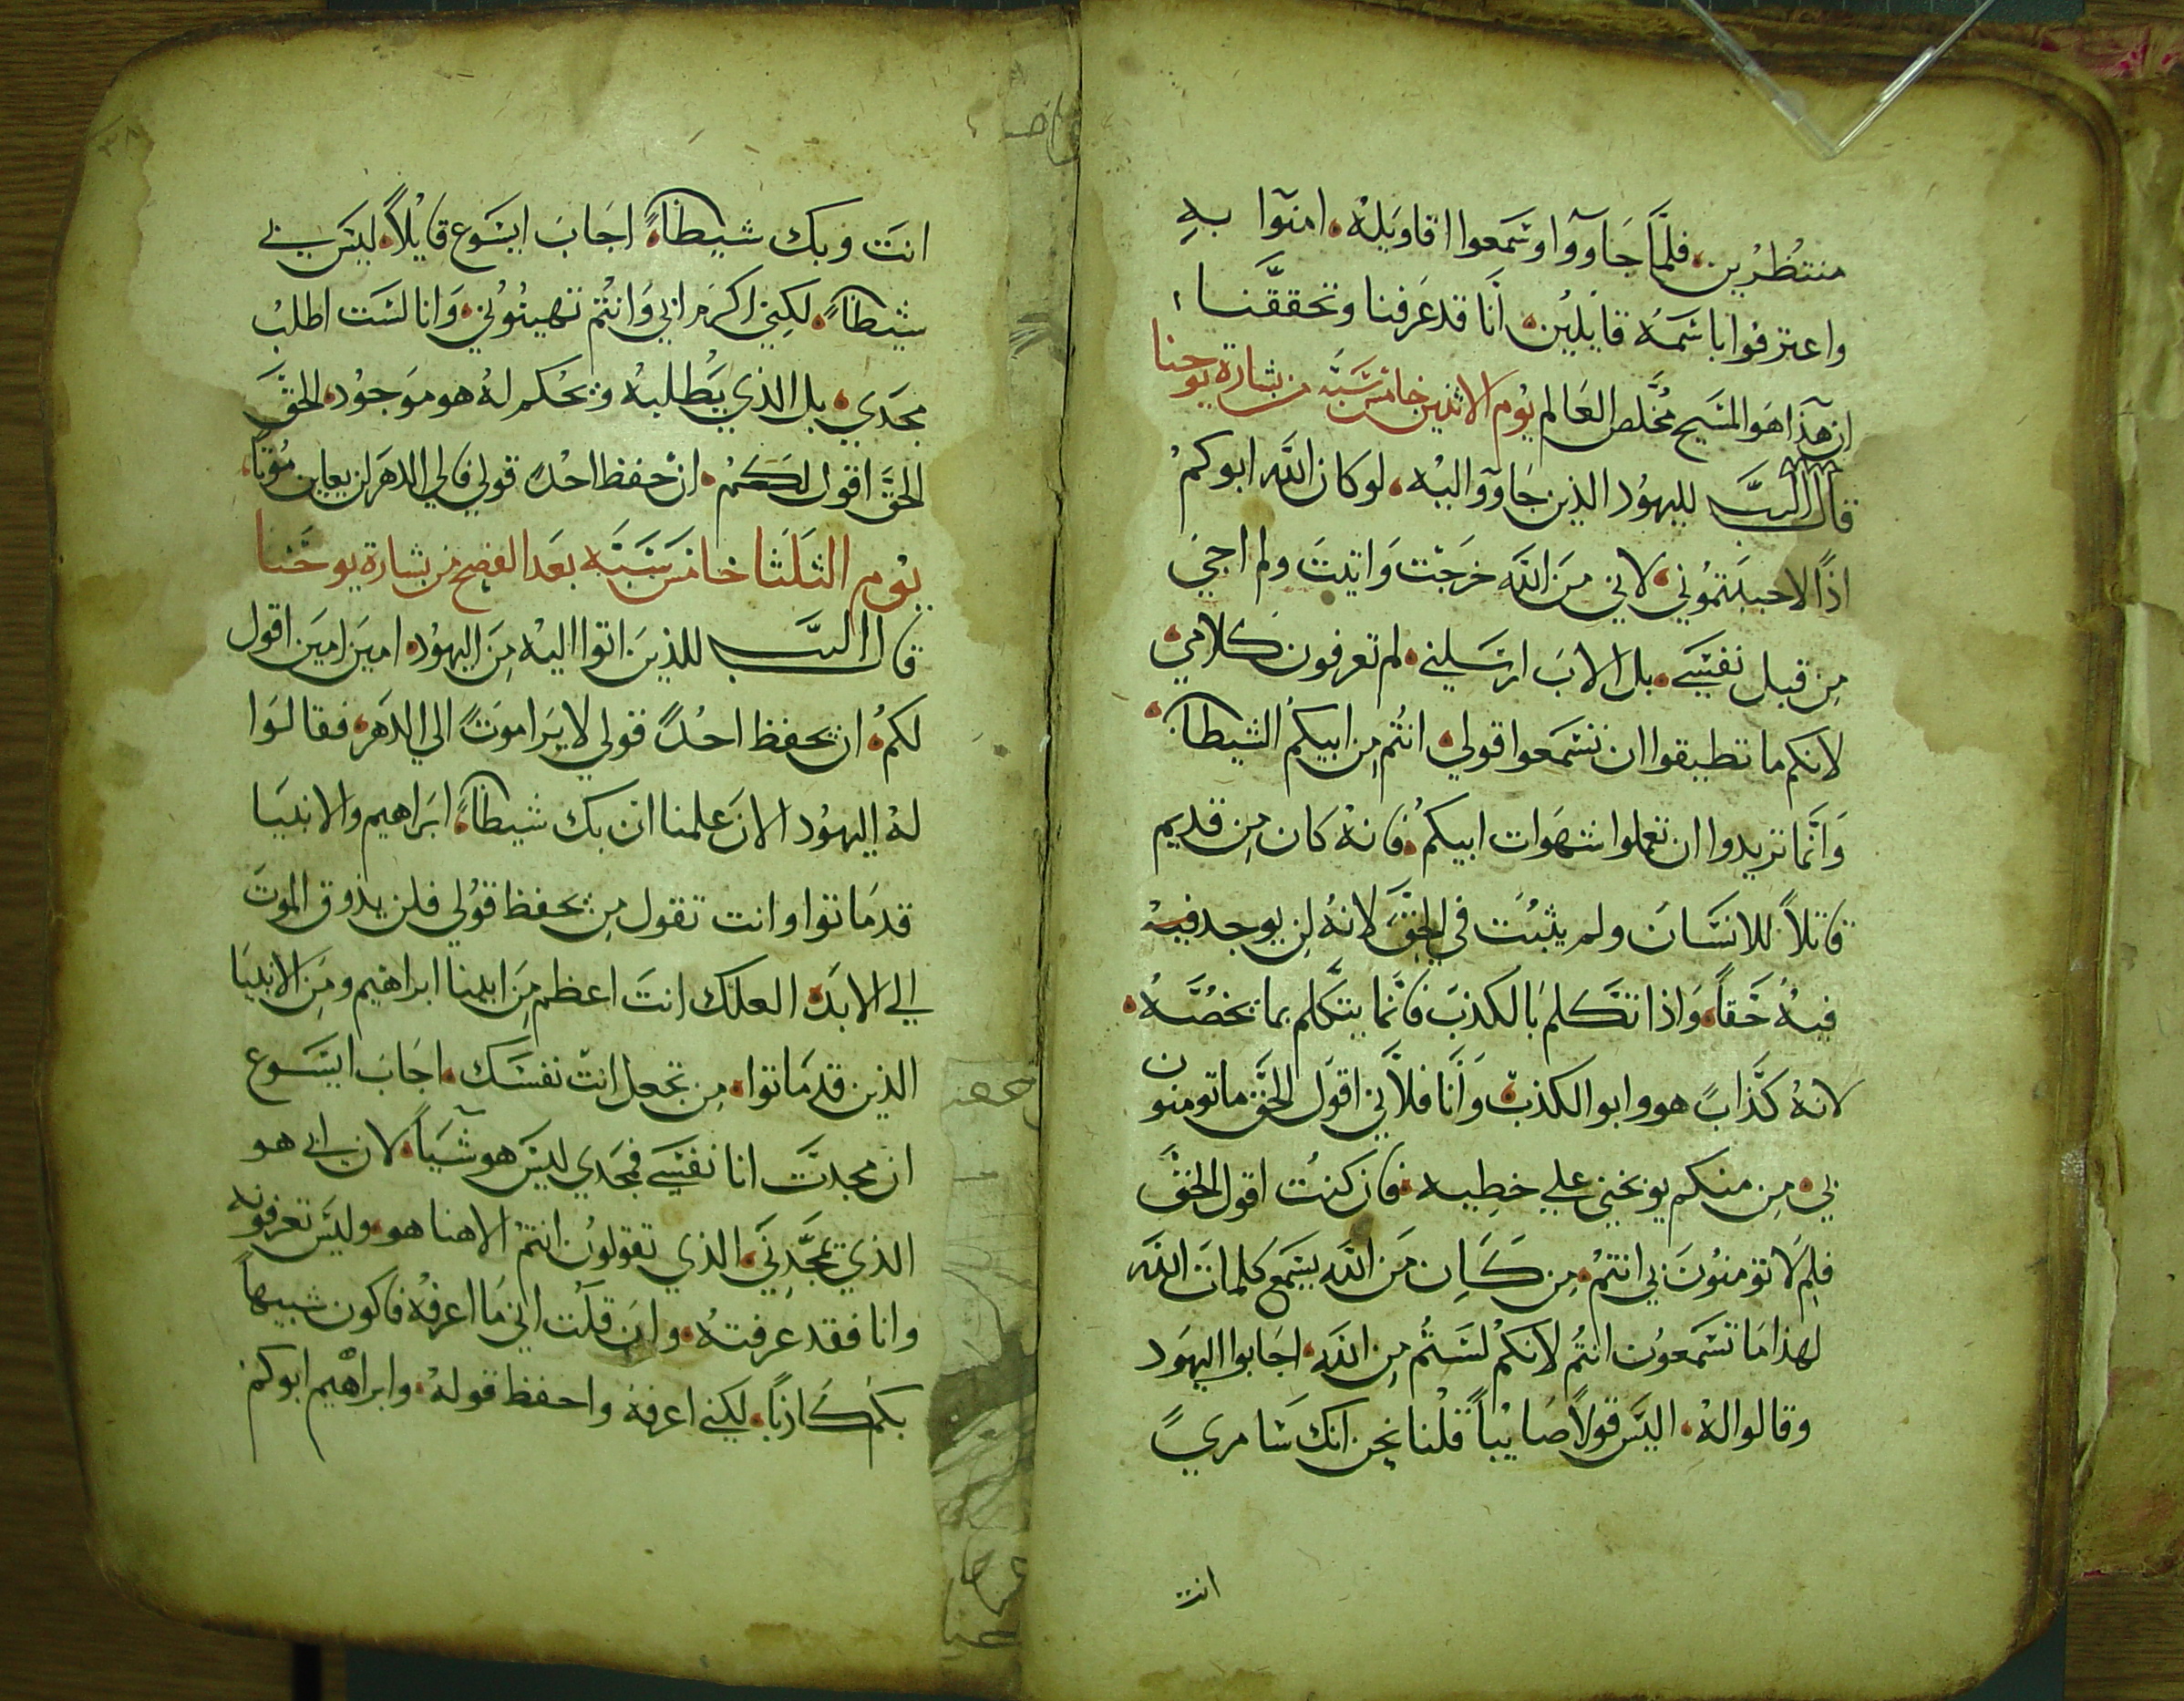 منتظرين. فلمَّا جَآووا وسَمعوا اقاويله. امنوا بهِ
واعترفوا باسَمهُ قايلين. انَّا قد عَرفنا وتحققَّنا
ان هَذا هَو المسَيح مُخَلص العَالم يوم الاثنين خامس سَبَّه من بشارة يوحنا
قال الربَّ لليهوُد الذين جَاووا اليْه. لو كان الله ابوكمْ
اذاً لاحببَتموُني. لاني مِنَ الله خرَجت وَاتيت ولم اجي
مِن قبل نفسَي. بل الابَ ارسَلني. لم تعرفون كلامي
لانكم ما تطيقوا ان تسَمعوا قولي. انتُم مِن ابيكمُ الشيطان
وَانَّما تريدوا ان تعملوا شهوَات ابيكمُ. فانهُ كان مِن قديم
قاتلاً للانسَان ولم يثبُت في الحقَّ لانهُ لن يوجد فيهْ
فيهُ حَقاً. وَاذا تتكلمَ بَالكذبَ فانَّما يتكلم بما يخصُّهُ.
لانهُ كذَّابً هو وابو الكذبَ. وَانَا فلاني اقولَ الحقَّ ما تومنون
بي. مِن منكم يوبخني علي خطيه. فان كنتُ اقول الحقَّ
فلِم لا تومنوُنَ بي انتمْ. مِن كَان مَن الله يسَمع كلمات الله
لهذا مَا تسَمعوُن انتُم لانكمْ لسَتُم مِن الله. اجَابوا اليهوَد
وقالوا لهُ. اليسَ قولاً صَايباً قلْنا نحن انك سَامريً
انت
انتَ وبك شيطان. اجَابَ ايسَوع قايْلاً. ليسَ بي
شيطان. لكنِني اكرمَ ابي وَانتُم تهينوُني. وَانا لسَت اطلبُ
مجَدي. بل الذي يَطلبهُ ويحُكم لهُ هو موَجوُد. الحقَّ
الحقَّ اقول لكمُ. ان حفظ احُدً قولي فالي الدهَر لن يعاين موُتاً.
يوُم الثلَثا خامسَ سَبَّه بعَد الفصح من بشارة يوحَنا
قال الربَّ للذينَ اتوا اليهْ مِنَ اليهوُد. امينَ امينَ اقول
لكمُ. ان يحفظ احُدً قولي لا يرَا موَتً الي الدهَر. فقالوَا
لهُ اليهوُد الانَ علمنا ان بك شيطان. ابرَاهيم والانبيَا
قد مَاتوا وانت تقول مِن يحفظ قوْلي فلن يذوق الموتَ
الي الابدَ. العلك انتَ اعظم مِنَ ابينا ابراهيم ومِنَ الانبيَا
الذين قد مَاتوا. مِن تجعل انت نفسَك. اجَابَ ايسَوع
ان مجدتَ انا نفسَي فمجَدي ليسَ هو شَياً. لان ابي هو
الذي يمجَّدِني. الذي تقولونُ انتمُ الاهنا هو. وليسَ تعرفونه
وانا فقد عرفتهُ. وان قلت اني مَا اعرفهُ فاكون شبيهاً
بكم كَاذباً. لكني اعرفهُ واحفظ قولهُ. وابراهْيم ابوكمْ